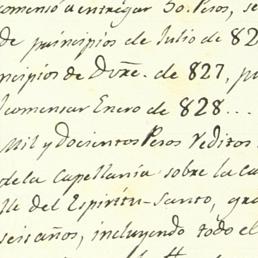 comensó a entregar 30. Pesos, se
de principios de Julio de 82
ncipios de Dize. de 827, p
comensar Enero de 828...
Mil y Docientos Pesos Veditos
dela Capellanía sobre la Ca
lle del Espiritu-Santo, gra
seis años, incluyendo todo el